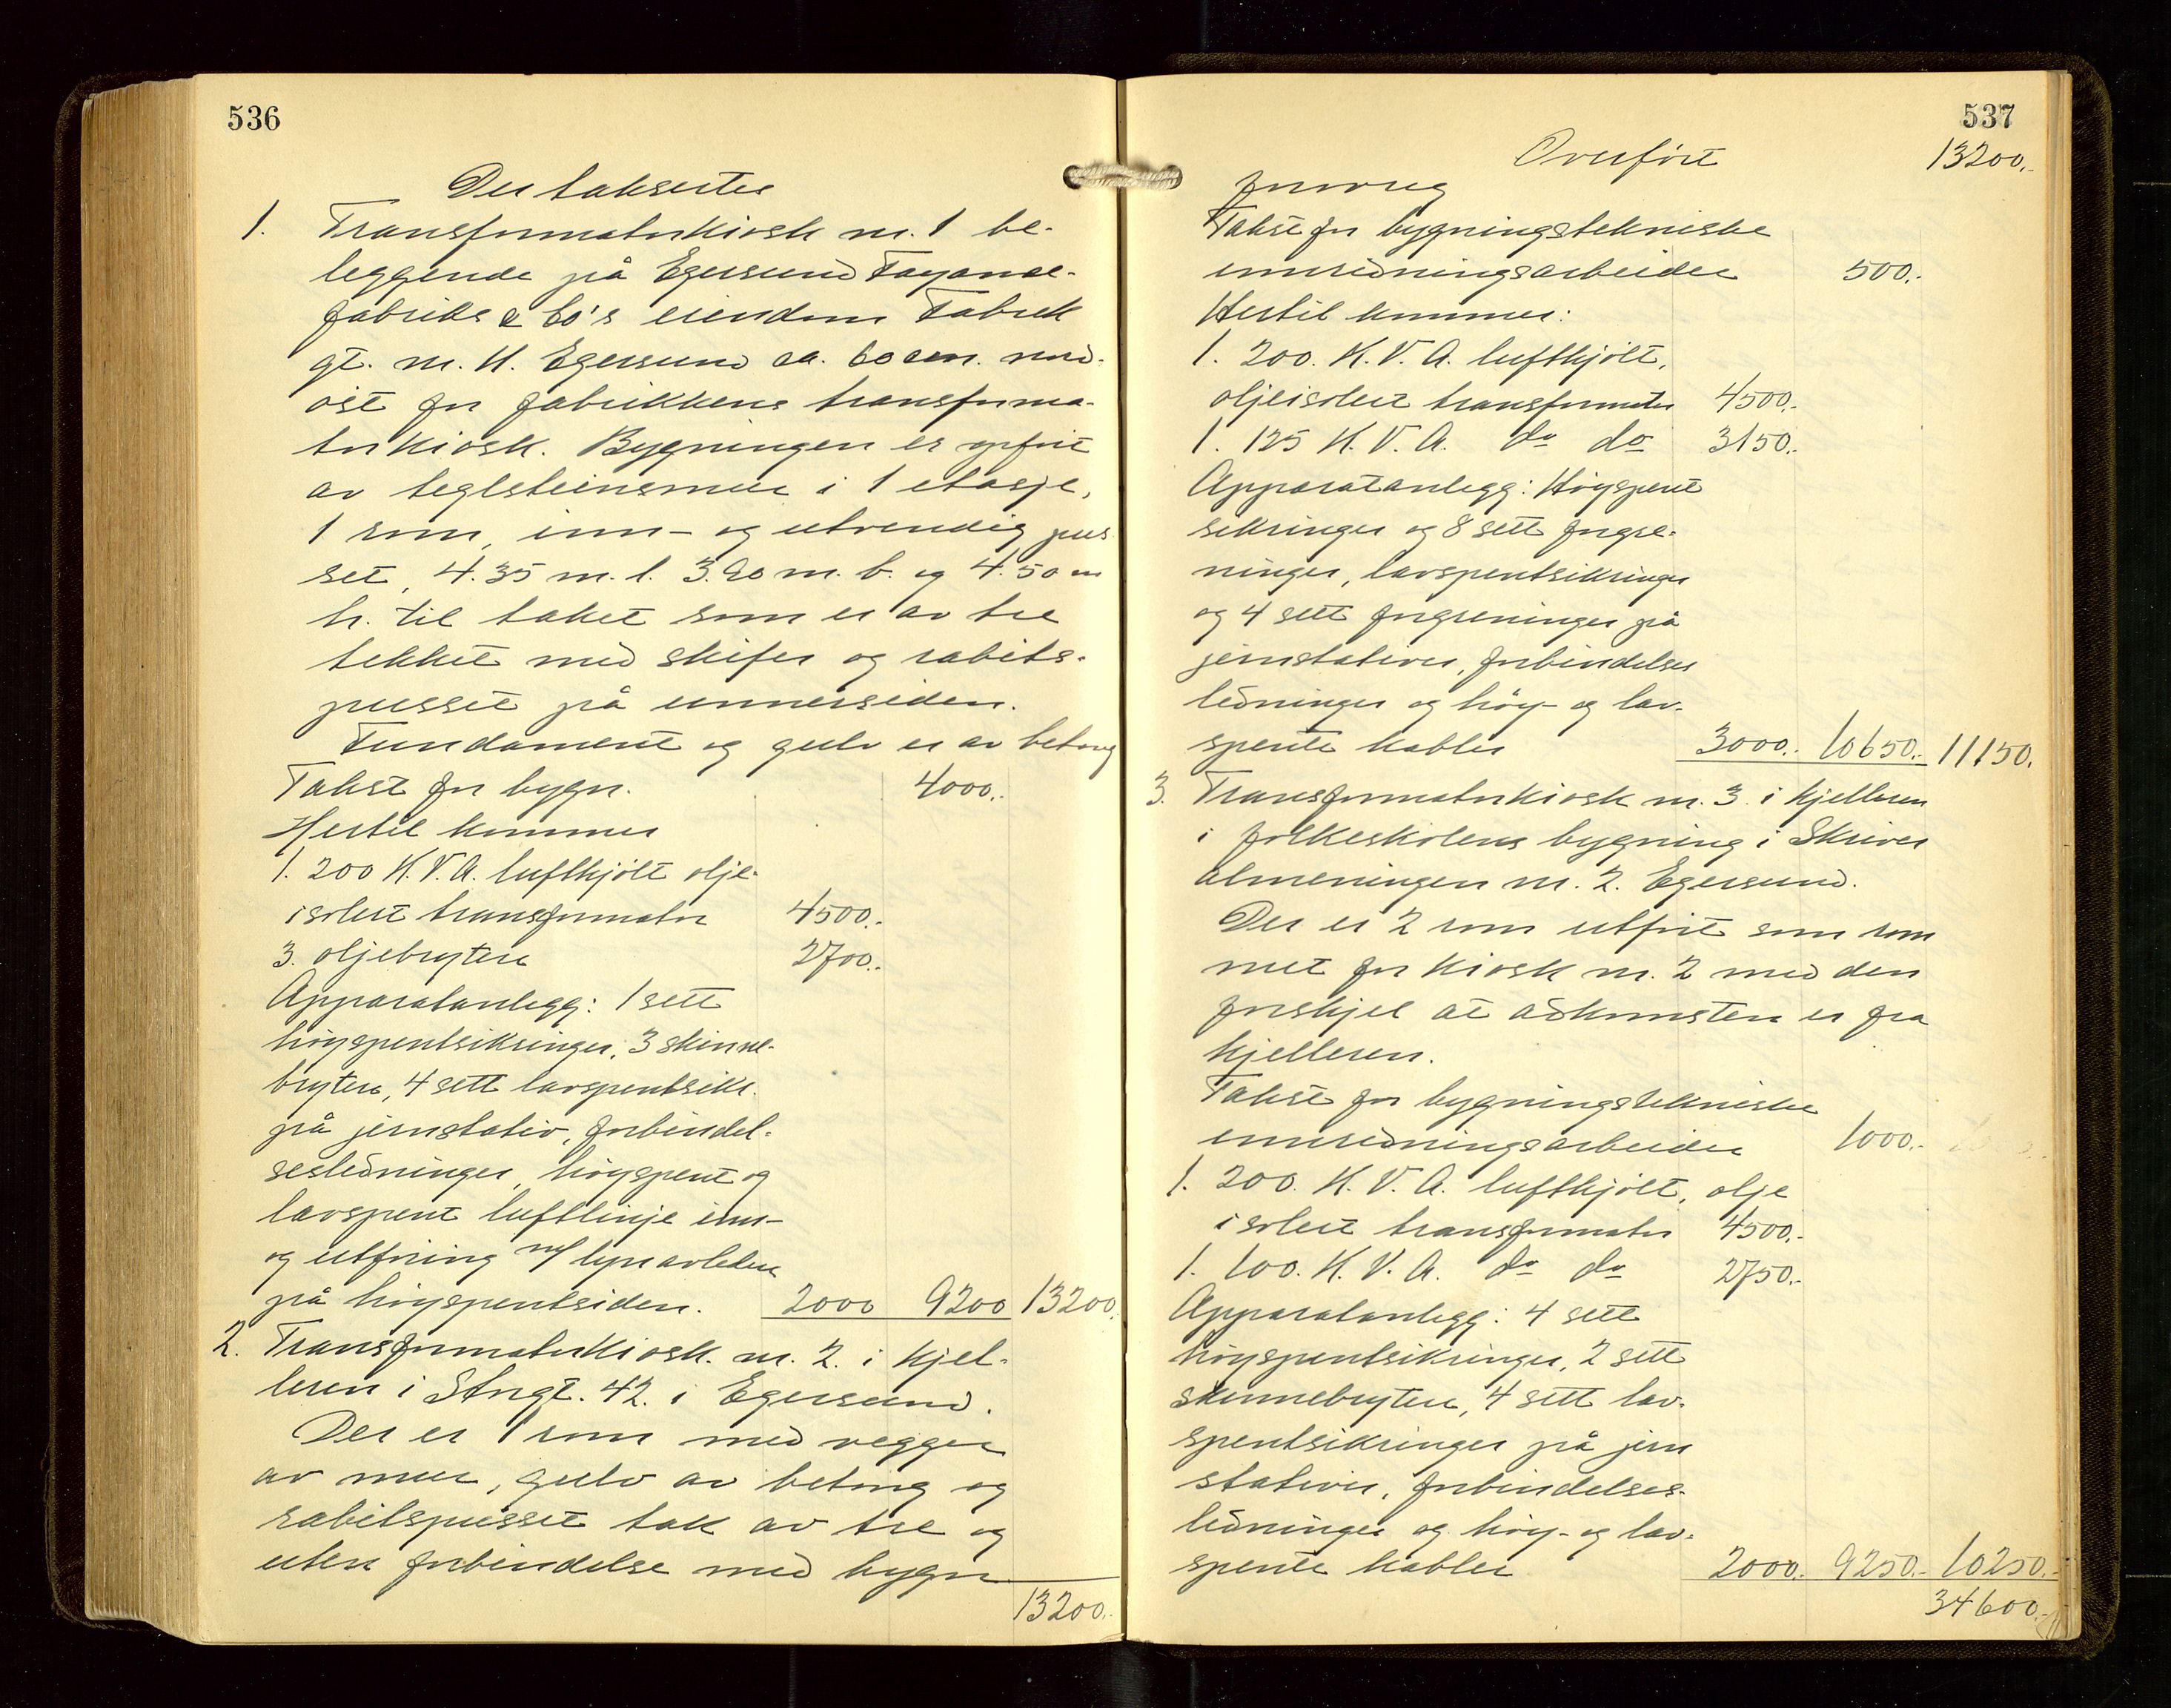 536
Der taksertes
1. Transformatorkiosk nr. 1 be-
leggende på Egersund Fayance-
fabriks & Co's eiendom Fabrik
gt. nr. 11. Egersund ca. 60 cm. nord-
øst for fabrikkens transforma-
torkiosk. Bygningen er opført
av teglsteinsmur i 1 etasje,
1 rom, inn- og utvendig pus-
set, 4.35 m. l. 3.20 m. b. og 4.50 m
h. til taket som er av tre
tekket med skifer og rabits-
pusset på unnersiden.
Fundament og gulv er av betong
Takst for bygn. 4000.-
Hertil kommer
1. 200 K.V.A. luftkjølt olje-
isolert transformator 4500.-
3. oljebrytere 2700.-
Apparatanlegg: 1 sett
høyspentsikringer, 3 skinne-
brytere, 4 sett lavspentsikr.
på jernstativ, forbindel-
sesledninger, høyspent og
lavspent luftlinje inn-
og utføring m/ lynavledere
på høyspentsiden. 2000 9200 13200.
2. Transformatorkiosk nr. 2. i kjel-
leren i Storgt. 42. i Egersund.
Der er 1 rom med vegger
av mur, gulv av betong og
rabitspusset tak av tre og
uten forbindelse med bygn
13200.-
537
Overført 13200.-
forøvrig
Takst for bygningstekniske
innredningsarbeider 500.-
Hertil kommer:
1. 200. K.V.A. luftkjølt,
oljeisolert transformator 4500.-
1. 125 K.V.A. do do 3150.-
Apparatanlegg: Høyspent
sikringer og 8 sett forgre-
ninger, lavspentsikringer
og 4 sett forgreninger på
jernstativer, forbindelses
ledninger og høy- og lav-
spente kabler 3000.- 10650.- 11150.
3. Transformatorkiosk nr. 3. i kjelleren
i folkeskolens bygning i Skriver
almeningen nr. 2. Egersund.
Der er 2 rom utført som rom
met for kiosk nr. 2 med den
forskjel at adkomsten er fra
kjelleren.
Takst for bygningstekniske
innredningsarbeider 1000.-
1. 200. K.V.A. luftkjølt, olje
isolert transformator 4500.-
1. 100. K.V.A. do do 2750.-
Apparatanlegg: 4 sett
høyspentsikringer, 2 sett
skinnebrytere, 4 sett lav-
spentsikringer på jern
stativer, forbindelses-
ledninger og høy- og lav-
spente kabler 2000.- 9250.- 10250.-
34600.-